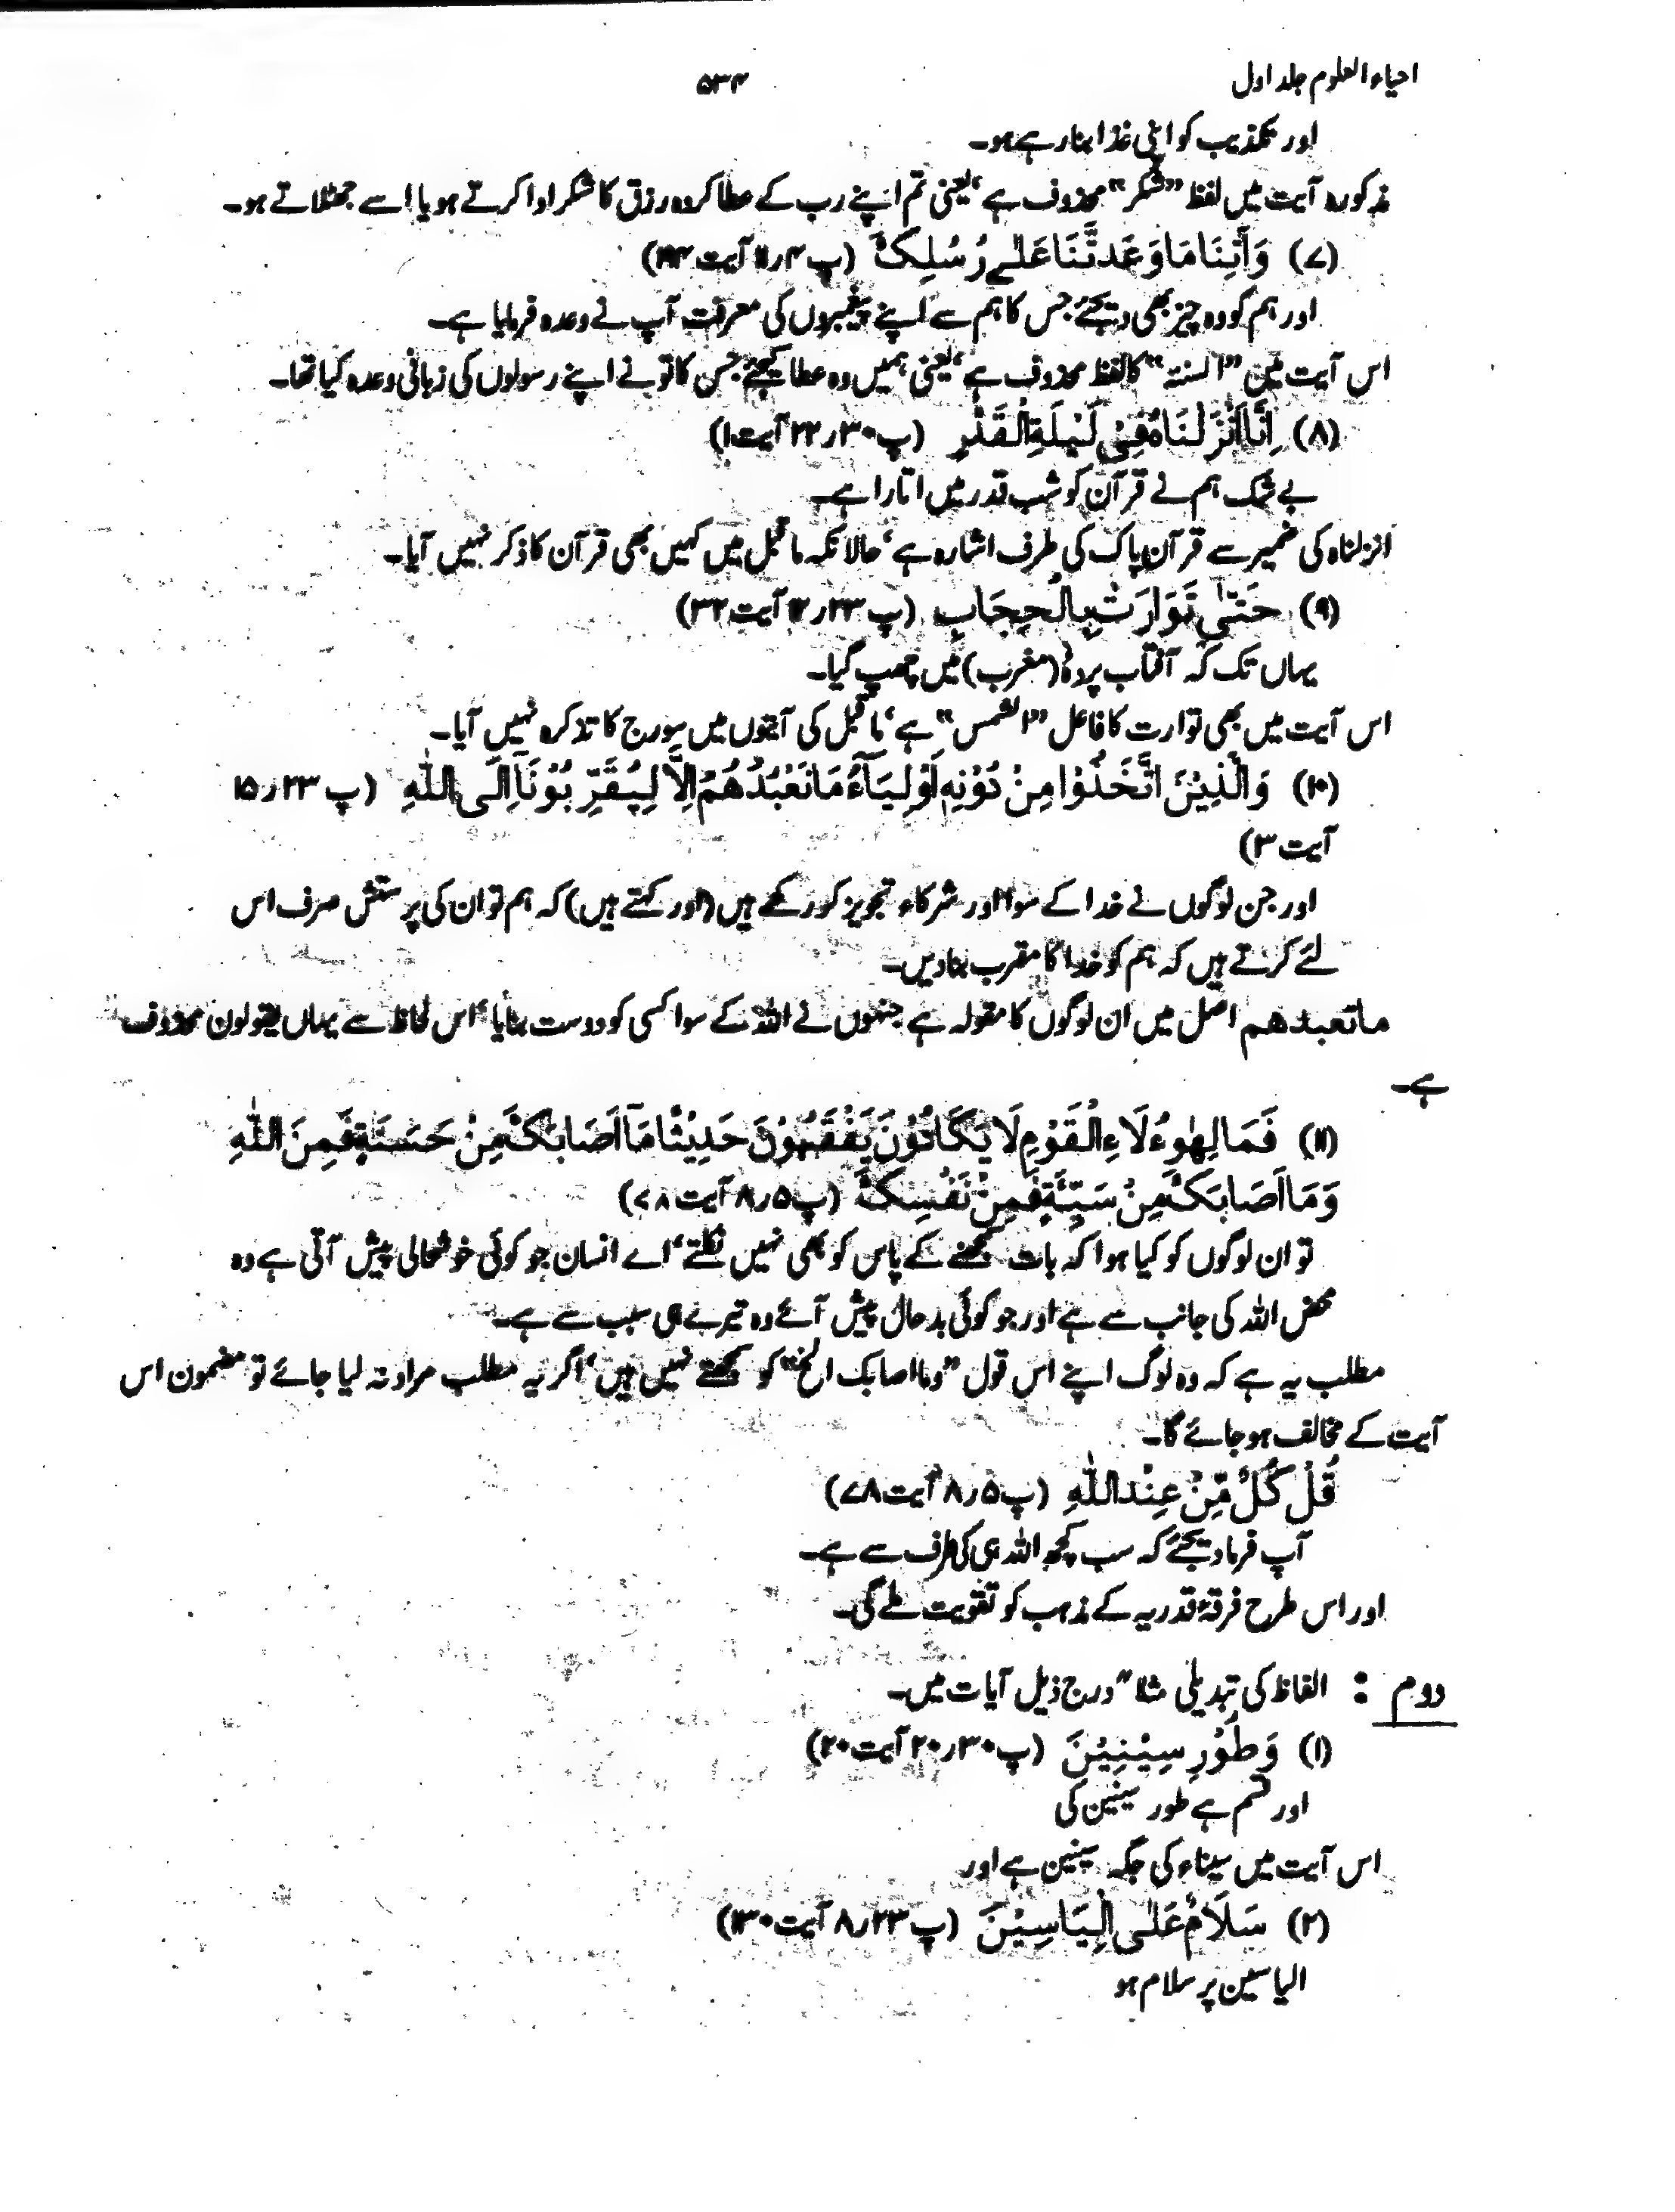 احیاء العلوم جلد اول
۵۳۴
اور تکذیب کو اپنی غذا بنا رہے ہو۔
مذکورہ آیت میں لفظ "شکر" محذوف ہے، یعنی تم اپنے رب کے عطا کردہ رزق کا شکر ادا کرتے ہو یا اسے جھٹلاتے ہو۔
(۷) وَآتِنَا مَا وَعَدتَّنَا عَلٰى رُسُلِكَ (پ ۴ر۱۱ آیت ۱۹۴)
اور ہم کو وہ چیز بھی دیجئے جس کا ہم سے اپنے پیغمبروں کی معرفت آپ نے وعدہ فرمایا ہے۔
اس آیت میں "السنتہ" کا لفظ محذوف ہے، یعنی ہمیں وہ عطا کیجئے جس کا تو نے اپنے رسولوں کی زبانی وعدہ کیا تھا۔
(۸) اِنَّا اَنْزَلْنَاهُ فِيْ لَيْلَةِ الْقَدْرِ (پ ۳۰ر۲۲ آیت ۱)
بے شک ہم نے قرآن کو شب قدر میں اتارا ہے۔
انزلناہ کی ضمیر سے قرآن پاک کی طرف اشارہ ہے، حالانکہ ماقبل میں کہیں بھی قرآن کا ذکر نہیں آیا۔
(۹) حَتّٰى تَوَارَتْ بِالْحِجَابِ (پ ۲۳ر۱۲ آیت ۳۲)
یہاں تک کہ آفتاب پردۂ (مغرب) میں چھپ گیا۔
اس آیت میں بھی توارت کا فاعل "الشمس" ہے، ماقبل کی آیتوں میں سورج کا تذکرہ نہیں آیا۔
(۱۰) وَالَّذِيْنَ اتَّخَذُوْا مِنْ دُوْنِهٖ اَوْلِيَآءُ مَا نَعْبُدُهُمْ اِلَّا لِيُقَرِّبُوْنَا اِلَى اللّٰهِ (پ ۲۳ر۱۵
آیت ۳)
اور جن لوگوں نے خدا کے سوا اور شرکاء تجویز کر رکھے ہیں (اور کہتے ہیں) کہ ہم تو ان کی پرستش صرف اس
لئے کرتے ہیں کہ ہم کو خدا کا مقرب بنا دیں۔
مانعبدهم اصل میں ان لوگوں کا مقولہ ہے جنہوں نے اللہ کے سوا کسی کو دوست بنایا، اس لحاظ سے یہاں یقولون محذوف
ہے۔
(۱۱) فَمَا لِهٰٓؤُلَاءِ الْقَوْمِ لَا يَكَادُوْنَ يَفْقَهُوْنَ حَدِيْثًا مَا اَصَابَكَ مِنْ حَسَنَةٍ فَمِنَ اللّٰهِ
وَمَا اَصَابَكَ مِنْ سَيِّئَةٍ فَمِنْ نَفْسِكَ (پ ۵ر۸ آیت ۷۸)
تو ان لوگوں کو کیا ہوا کہ بات سمجھنے کے پاس کو بھی نہیں نکلتے، اے انسان جو کوئی خوشحالی پیش آتی ہے وہ
محض اللہ کی جانب سے ہے اور جو کوئی بدحال پیش آئے وہ تیرے ہی سبب سے ہے۔
مطلب یہ ہے کہ وہ لوگ اپنے اس قول "وما اصابک الخ" کو سمجھتے نہیں ہیں، اگر یہ مطلب مراد نہ لیا جائے تو مضمون اس
آیت کے مخالف ہو جائے گا۔
قُلْ كُلٌّ مِّنْ عِنْدِ اللّٰهِ (پ ۵ر۸ آیت ۷۸)
آپ فرما دیجئے کہ سب کچھ اللہ ہی کی طرف سے ہے۔
اور اس طرح فرقۂ قدریہ کے مذہب کو تقویت ملے گی۔
دوم : الفاظ کی تبدیلی مثلاً درج ذیل آیات میں۔
(۱) وَطُوْرِ سِيْنِيْنَ (پ ۳۰ر۲۰ آیت ۲۰)
اور قسم ہے طور سینین کی
اس آیت میں سیناء کی جگہ سینین ہے اور
(۲) سَلَامٌ عَلٰى اِلْيَاسِيْنَ (پ ۲۳ر۸ آیت ۱۳۰)
الیاسین پر سلام ہو